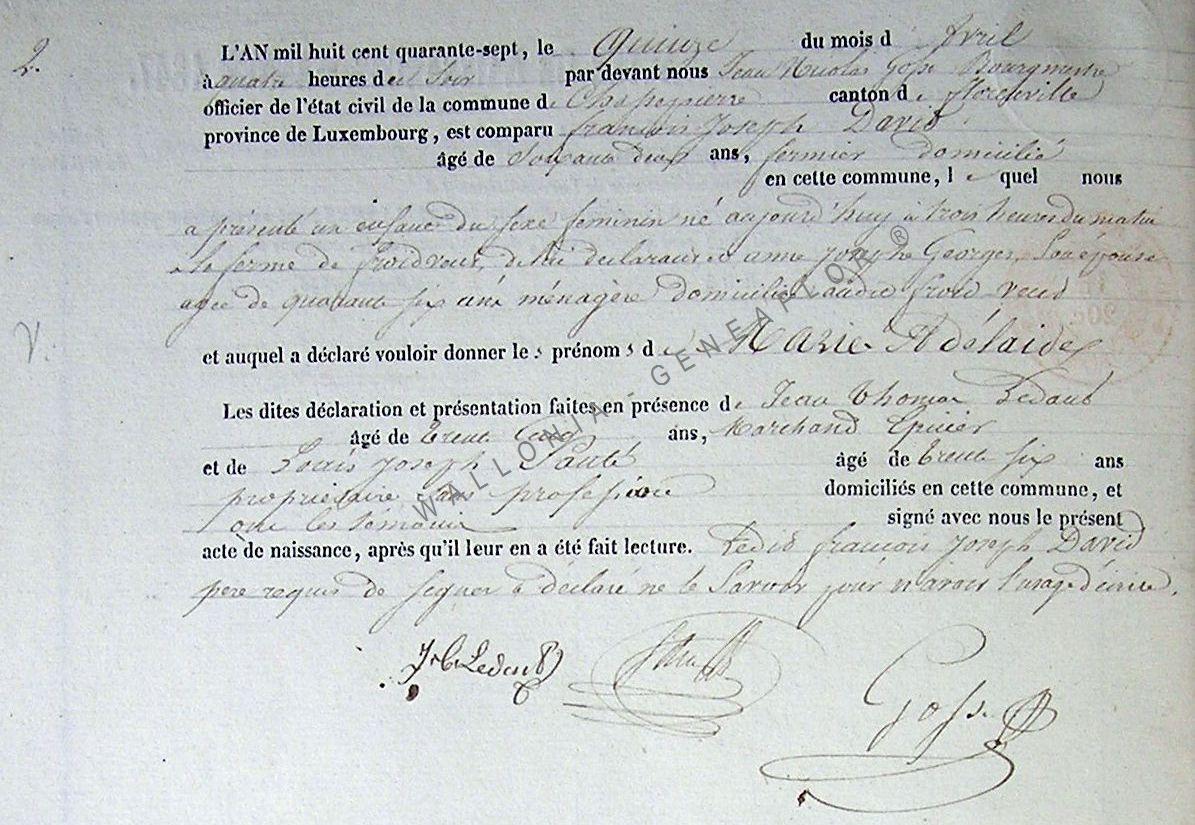 2.
L'AN mil huit cent quarante-sept, le quinze du mois d'Avril
à quatre heures du Soir par devant nous Jean Nicolas Gosse Bourgmestre
officier de l'état civil de la commune de Chassepierre canton de florenville
province de Luxembourg, est comparu françois Joseph David
âgé de Soixante deux ans, fermier domicilié
en cette commune, le quel nous
a présenté un enfant du sexe feminin né aujourd'huy à trois heures du matin
a la ferme de froidvent, de lui declarant et anne josephe Georges, Son épouse
agée de quarante six ans ménagère domiciliée audit froid vent
V.
et auquel a déclaré vouloir donner les prénoms de Marie Adélaide
Les dites déclaration et présentation faites en présence de Jean Thomas Ledent
âgé de trente cinq ans, Marchand Epicier
et de Louis Joseph âgé de trente six ans
propriétaire sans profession domiciliés en cette commune, et
ont les témoins signé avec nous le présent
acte de naissance, après qu'il leur en a été fait lecture. Ledit françois Joseph David
pere requis de signer a déclaré ne le Savoir pour n'avoir l'usage d'écrire.
Gosse
WALLONIA - GENEAPLO ®